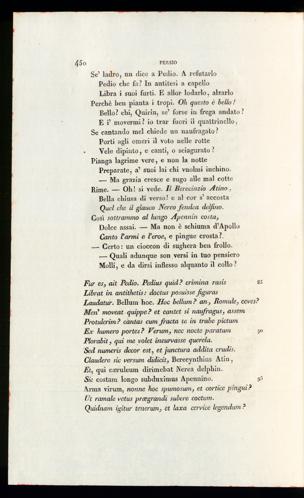 450 PERSIO
Se' ladro, un dice a Pedio. A refutarlo
Pedio che fa? In antitesi a capello
Libra i suoi furti. E allor lodarlo, alzarlo
Perchè ben pianta i tropi. Oh questo è bello!
Bello? chi, Quirin, se' forse in frega andato?
E i' movermi? io trar fuori il quattrinello,
Se cantando mel chiede un naufragato?
Porti agli omeri il voto nelle rotte
Vele dipinto, e canti, o sciagurato?
Pianga lagrime vere, e non la notte
Preparate, a' suoi lai chi vuolmi inchino.
— Ma grazia cresce e sugo alle mal cotte
Rime. — Oh! sì vede. Il Berecinzio Atino,
Bella chiusa di verso! e al cor s' accosta
Quel che il glauco Nereo fendea delfino.
Così sottrammo al lungo Apennin costa,
Dolce assai. — Ma non è schiuma d'Apollo
Canto l'armi e l'eroe, e pingue crosta?
— Certo: un cioccon di sughera ben frollo.
— Quali adunque son versi in tuo pensiero
Molli, e da dirsi inflesso alquanto il collo?
Fur es, ait Pedio. Pedius quid? crimina rasis 85
Librat in antithetis: doctus posuisse figuras
Laudatur. Bellum hoc. Hoc bellum? an, Romule, ceves?
Men' moveat quippe? et cantet si naufragus, assem
Protulerim? cantas cum fracta te in trabe pictum
Ex humero portes? Verum, nec nocte paratum 90
Plorabit, qui me volet incurvasse querela.
Sed numeris decor est, et junctura addita crudis.
Claudere sic versum didicit, Berecynthius Atin,
Et, qui cæruleum dirimebat Nerea delphin.
Sic costam longo subduximus Apennino. 95
Arma virum, nonne hoc spumosum, et cortice pingui?
Ut ramale vetus prægrandi subere coctum.
Quidnam igitur tenerum, et laxa cervice legendum?